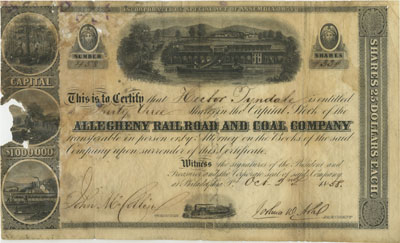 INCORPORATED BY SPECIAL ACT OF ASSEMBLY
NUMBER
SHARES
CAPITAL
$1,000,000
SHARES 25 DOLLARS EACH
This is to Certify that Hector Tyndale is entitled
to Shares in the Capital Stock of the
ALLEGHENY RAILROAD AND COAL COMPANY
transferable in person or by Attorney on the Books of the said
Company upon surrender of this Certificate.
Witness the signatures of the President and
Treasurer and the Corporate seal of said Company
at Philadelphia Oct. 2nd 1858.